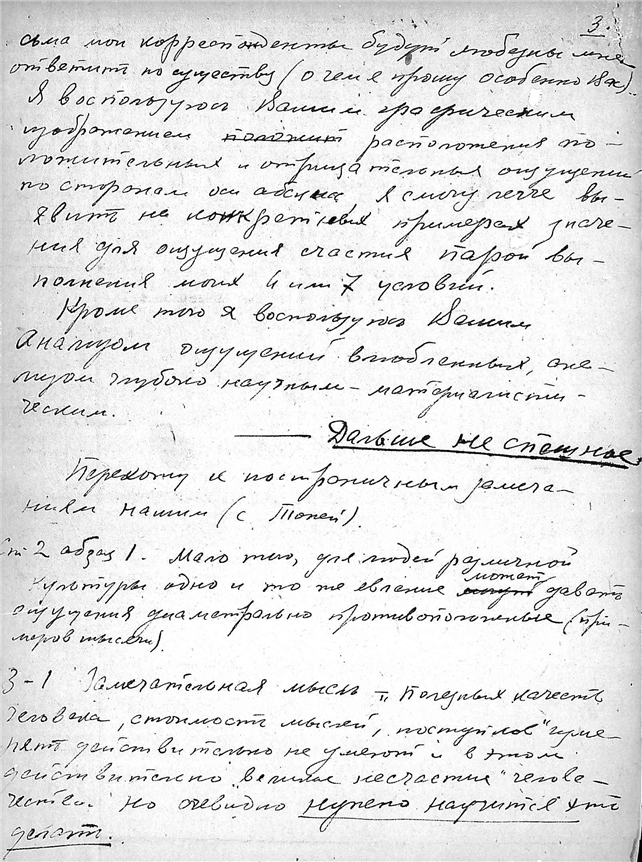 3.
сьма мои корреспонденты будут любезны мне
ответит по существу (о чем я прошу особенно Вас).
Я воспользуюсь Вашим графическим
изображением расположения по-
ложительных и отрицательных ощущений
по сторонам оси абсцисс Я смогу легче вы-
явит на конкретных примерах значе-
ния для ощущения счастия парой вы-
полнения моих 4 или 7 условий.
Кроме того я воспользуюсь Вашим
Анализом ощущений влюбленных, ана-
лизом глубоко научным - материалисти-
ческим.
Дальше не спешное.
Перехожу к постраничным замеча-
ниям нашим (с Таней).
Ст 2 абзац 1. Мало того, для людей различной
культуры одно и то же евление может давать
ощущения диаметрально противоположные (при-
меров тысячи).
3-1 Замечательная мысль - "Полезных качеств
человека, стоимость мыслей, поступков" цене-
нят действительно не умеют и в этом
действительно "великое несчастие" челове-
чества. Но очевидно нужно научится это
делат.